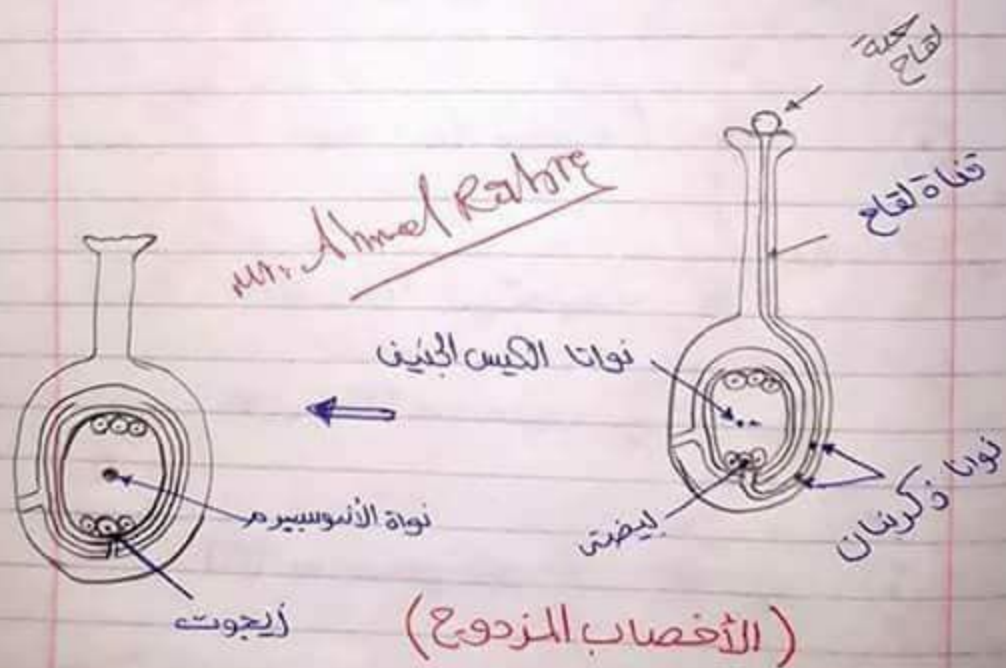 حبة
لقاح
قناة لقاح
Mr. Ahmed
نواتا الكيس الجنيني
نواتا ذكريتان
بيضة
نواة الأندوسبيرم
زيجوت
(الأخصاب المزدوج)